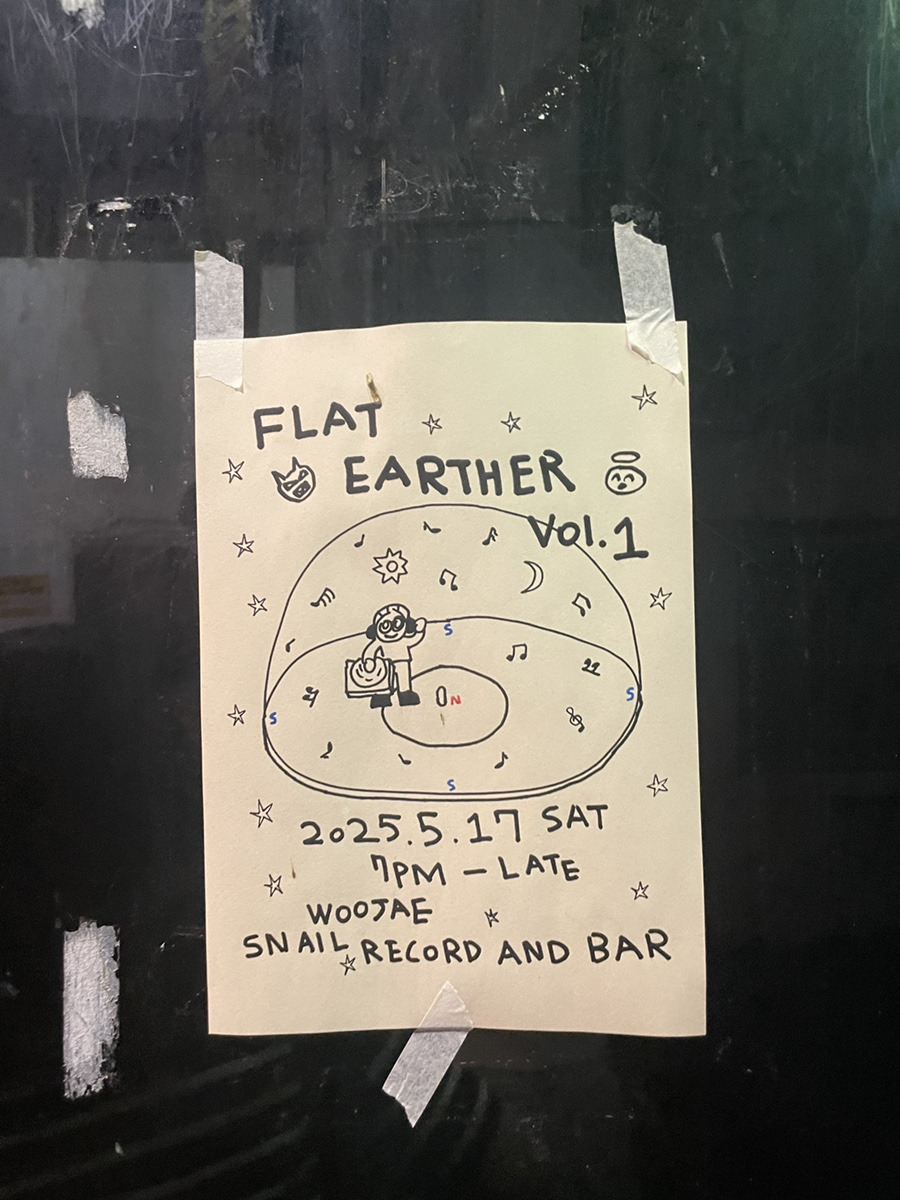 FLAT
EARTHER
Vol.1
S
S
S
ON
S
2025.5.17 SAT
7PM – LATE
WOOJAE
SNAIL RECORD AND BAR